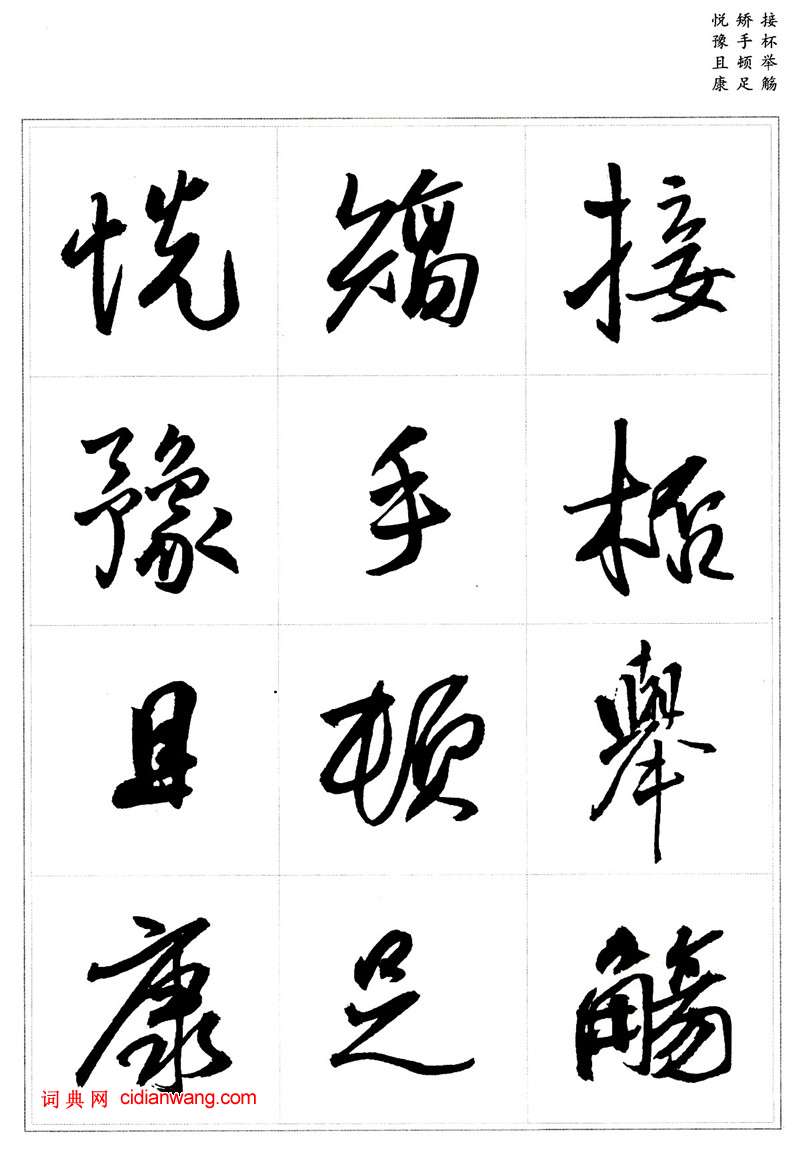 接杯举觞
矫手顿足
悦豫且康
接杯舉觴
矯手頓足
悦豫且康
词典网 cidianwang.com